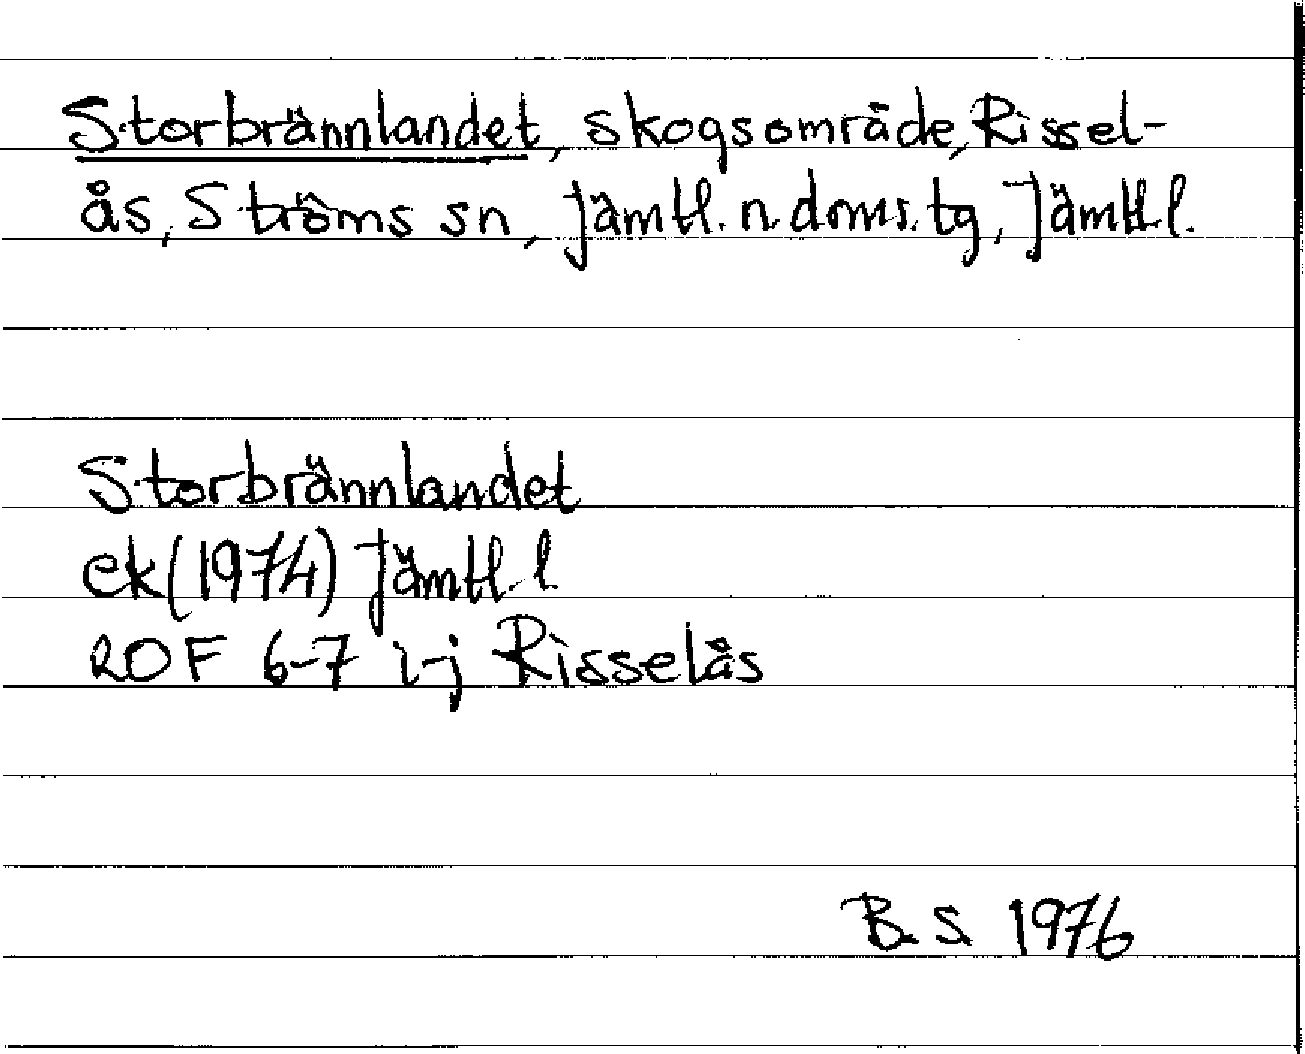 Storbrännlandet, skogsområde, Rissel-
ås, Ströms sn, Jämtl. n doms. tg, Jämtl l.
Storbrännlandet
ek (1974) Jämtl. l
20F 6-7 i-j Risselås
B. S. 1976